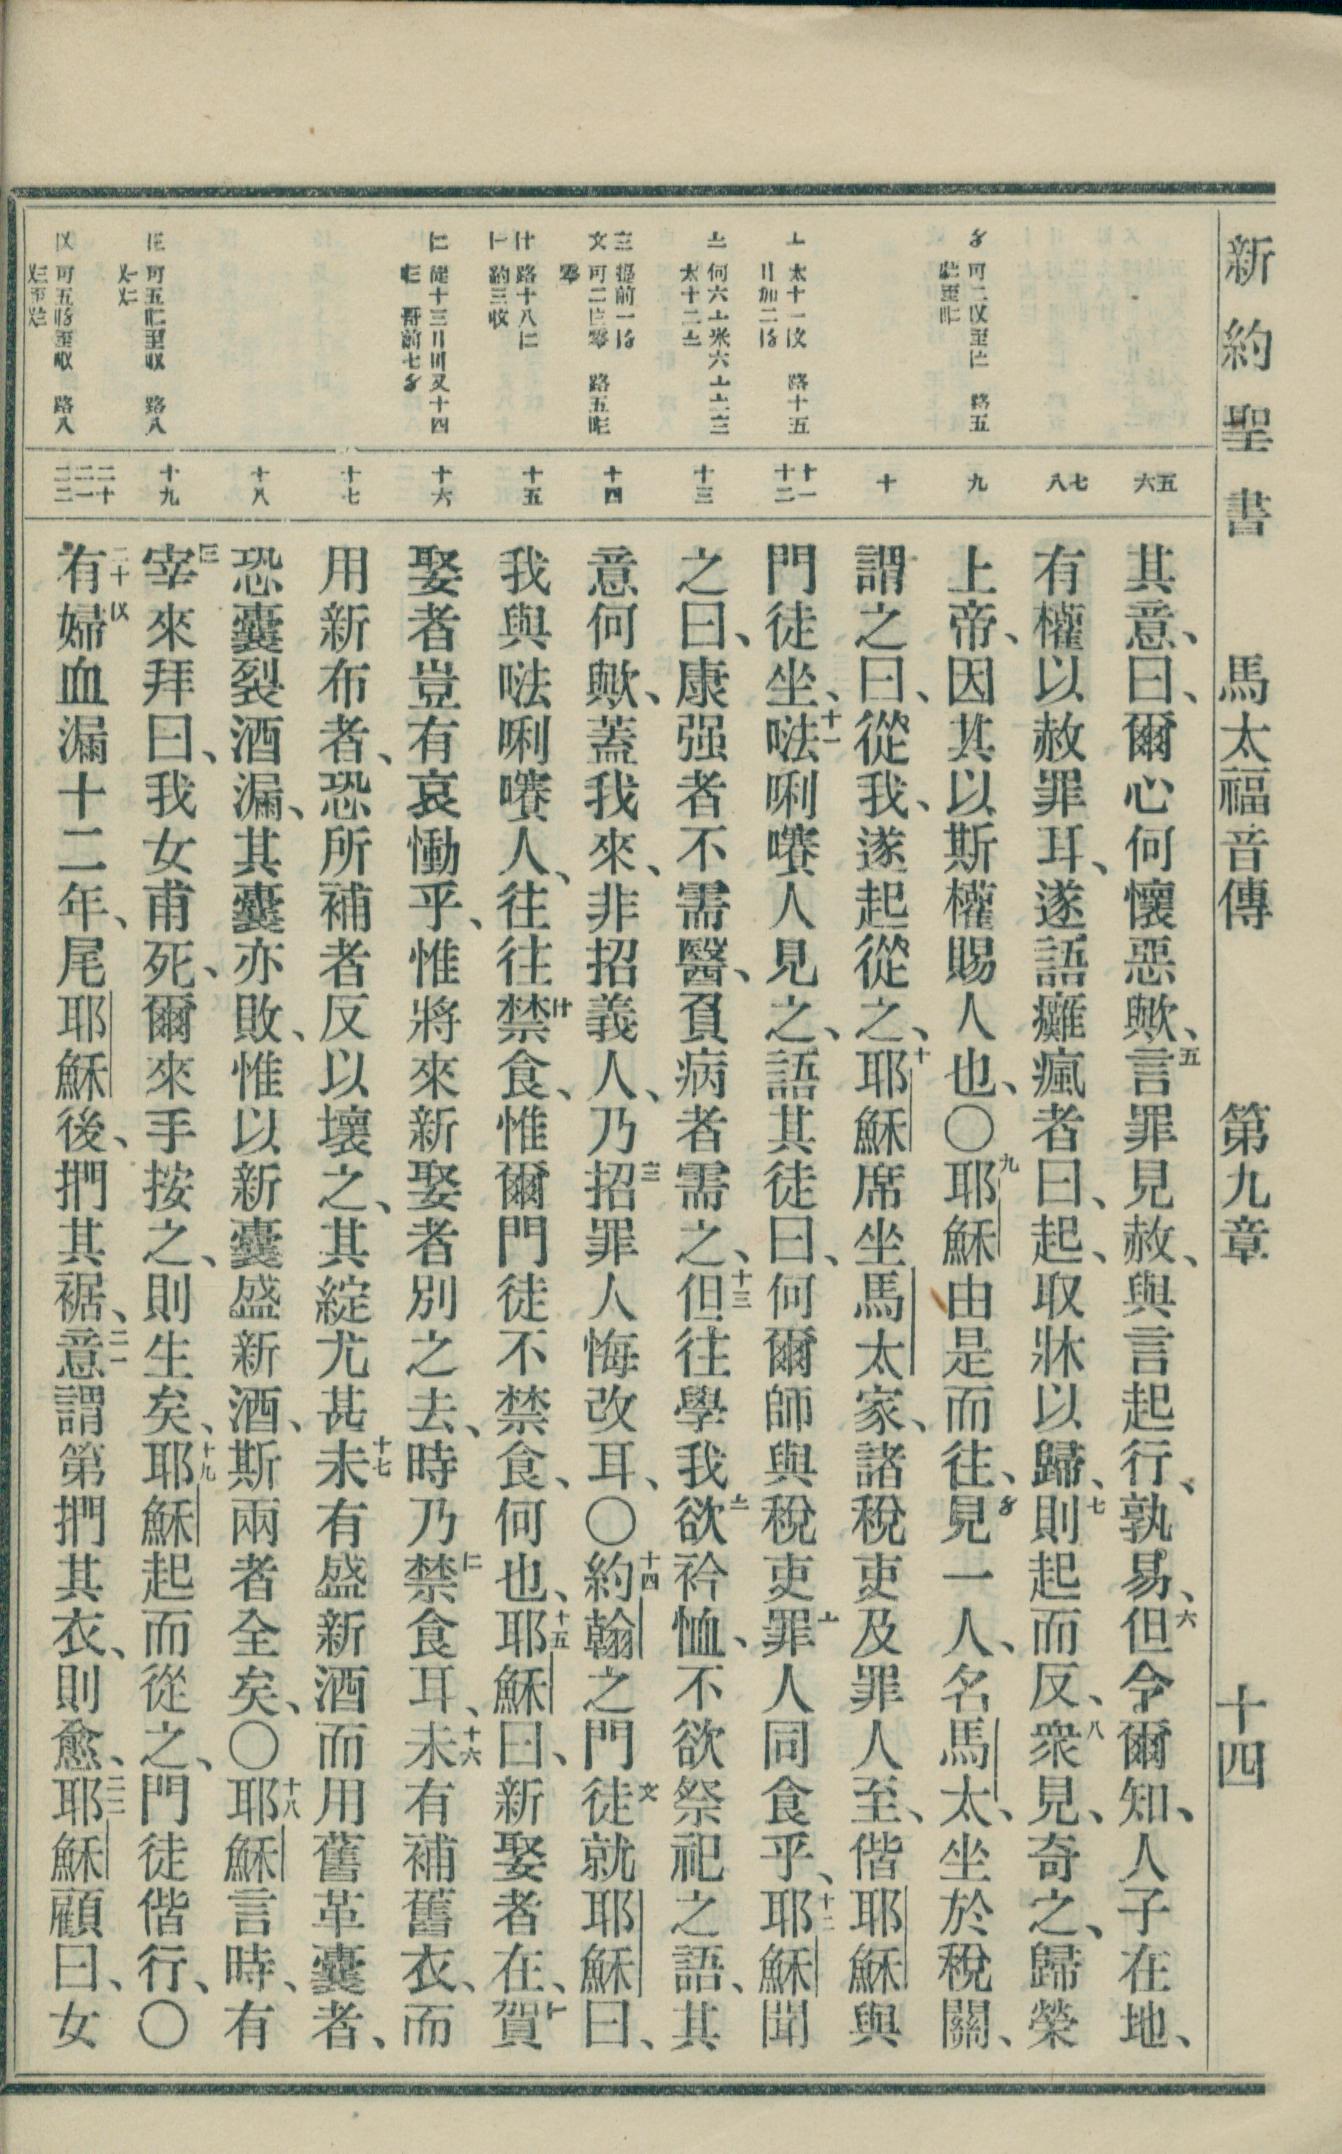 新約聖書 馬太福音傳 第九章 十四
五 六
七 八
九
十
十一 十二
十三
十四
十五
十六
十七
十八
十九
二十 二一 二二
其意、曰、爾心何懷惡歟、五言罪見赦、與言起行、孰易、六但令爾知、人子在地、
有權以赦罪耳、遂語癱瘋者曰、起、取牀以歸、七則起而反、八衆見、奇之、歸榮
上帝、因其以斯權賜人也、〇九耶穌由是而往、見一人、名馬太、坐於稅關、
謂之曰、從我、遂起從之、十耶穌席坐馬太家、諸稅吏及罪人至、偕耶穌與
門徒坐、十一㗲唎㘔人見之、語其徒曰、何爾師與稅吏罪人同食乎、十二耶穌聞
之曰、康强者不需醫、負病者需之、十三但往學我欲矜恤、不欲祭祀之語、其
意何歟、蓋我來、非招義人、乃招罪人悔改耳、〇十四約翰之門徒就耶穌曰、
我與㗲唎㘔人、往往禁食、惟爾門徒不禁食、何也、十五耶穌曰、新娶者在、賀
娶者豈有哀慟乎、惟將來新娶者別之去、時乃禁食耳、十六未有補舊衣、而
用新布者、恐所補者反以壞之、其綻尤甚、十七未有盛新酒而用舊革囊者、
恐囊裂酒漏、其囊亦敗、惟以新囊盛新酒、斯兩者全矣、〇十八耶穌言時、有
宰來拜曰、我女甫死、爾來手按之、則生矣、十九耶穌起而從之、門徒偕行、〇
二十有婦血漏十二年、尾耶穌後、捫其裾、二一意謂第捫其衣、則愈、二二耶穌顧曰、女